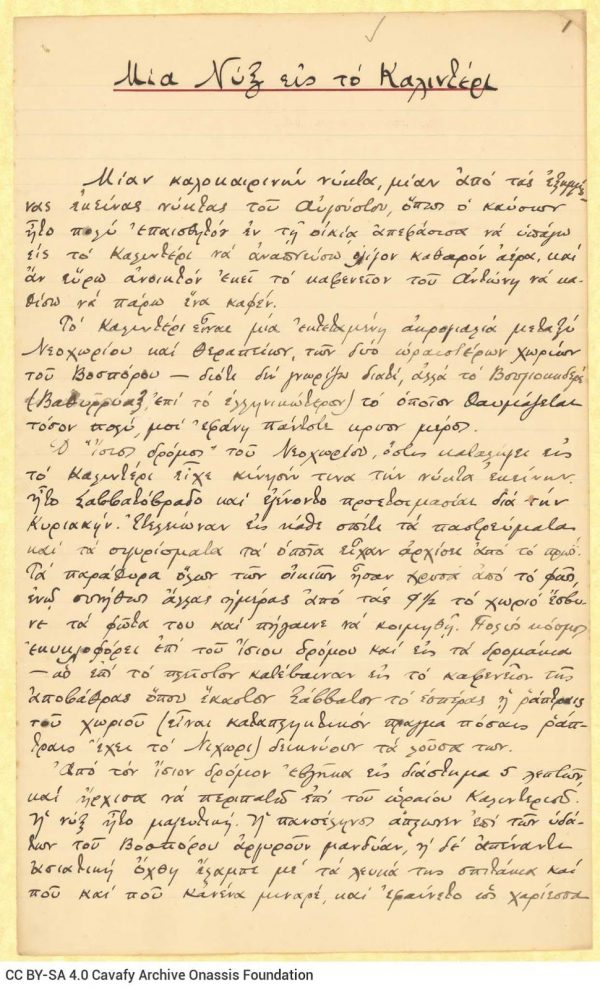 1
Μία Νὺξ εἰς τὸ Καλιντέρι
Μίαν καλοκαιρινὴν νύκτα, μίαν ἀπὸ τὰς ἐξημμέ-
νας ἐκείνας νύκτας τοῦ Αὐγούστου, ὅπου ὁ καύσων
ἦτο πολὺ ἐπαισθητὸν ἐν τῇ οἰκίᾳ ἀπεφάσισα νὰ ὑπάγω
εἰς τὸ Καλιντέρι νὰ ἀναπνεύσω ὀλίγον καθαρὸν ἀέρα, καὶ
ἂν εὕρω ἀνοικτὸν ἐκεῖ τὸ καφενεῖον τοῦ Ἀντώνη νὰ κα-
θίσω νὰ πάρω ἕνα καφέν.
Τὸ Καλιντέρι εἶναι μία ἐκτεταμένη ἀκρογιαλιὰ μεταξὺ
Νεοχωρίου καὶ Θεραπείων, τῶν δύο ὡραιοτέρων χωρίων
τοῦ Βοσπόρου — διότι δὲν γνωρίζω διατί, ἀλλὰ τὸ Βουγιουκδερὲ
(Βαθυρρύαξ ἐπὶ τὸ ἑλληνικώτερον) τὸ ὁποῖον θαυμάζεται
τόσον πολύ, μοὶ ἐφάνη πάντοτε κρύον μέρος.
Ὁ "ἴσιος δρόμος" τοῦ Νεοχωρίου, ὅστις καταλήγει εἰς
τὸ Καλιντέρι εἶχε κίνησίν τινα τὴν νύκτα ἐκείνην.
Ἦτο Σαββατόβραδο καὶ ἐγίνοντο προετοιμασίαι διὰ τὴν
Κυριακήν. Ἐτελείωναν εἰς κάθε σπίτι τὰ παστρεύματα
καὶ τὰ συγυρίσματα τὰ ὁποῖα εἶχαν ἀρχίσει ἀπὸ τὸ πρωΐ.
Τὰ παράθυρα ὅλων τῶν οἰκιῶν ἦσαν χρυσᾶ ἀπὸ τὸ φῶς,
ἐνῷ συνήθως ἄλλας ἡμέρας ἀπὸ τὰς 9½ τὸ χωριὸ ἔσβυ-
νε τὰ φῶτα του καὶ πήγαινε νὰ κοιμηθῇ. Πολὺς κόσμος
ἐκυκλοφόρει ἐπὶ τοῦ ἴσιου δρόμου καὶ εἰς τὰ δρομάκια
— ὡς ἐπὶ τὸ πλεῖστον κατέβαιναν εἰς τὸ καφενεῖον τῆς
ἀποβάθρας ὅπου ἕκαστον Σάββατον τὸ ἑσπέρας ᾑ ῥάπτραις
τοῦ χωριοῦ (εἶναι καταπληκτικὸν πρᾶγμα πόσαις ῥάπ-
τραις ἔχει τὸ Νιχώρι) δεικνύουν τὰ λοῦσα των.
Ἀπὸ τὸν ἴσιον δρόμον ἐβγῆκα εἰς διάστημα 5 λεπτῶν,
καὶ ἤρχισα νὰ περιπατῶ ἐπὶ τοῦ ὡραίου Καλιντεριοῦ.
Ἡ νὺξ ἦτο μαγευτική. Ἡ πανσέληνος ἅπλωνεν ἐπὶ τῶν ὑδά-
των τοῦ Βοσπόρου ἀργυροῦν μανδύαν, ἡ δὲ ἀπέναντι
ἀσιατικὴ ὄχθη ἔλαμπε μὲ τὰ λευκά της σπιτάκια καὶ
ποῦ καὶ ποῦ κανένα μιναρέ, καὶ ἐφαίνετο ὡς χαρίεσσα
CC BY-SA 4.0 Cavafy Archive Onassis Foundation